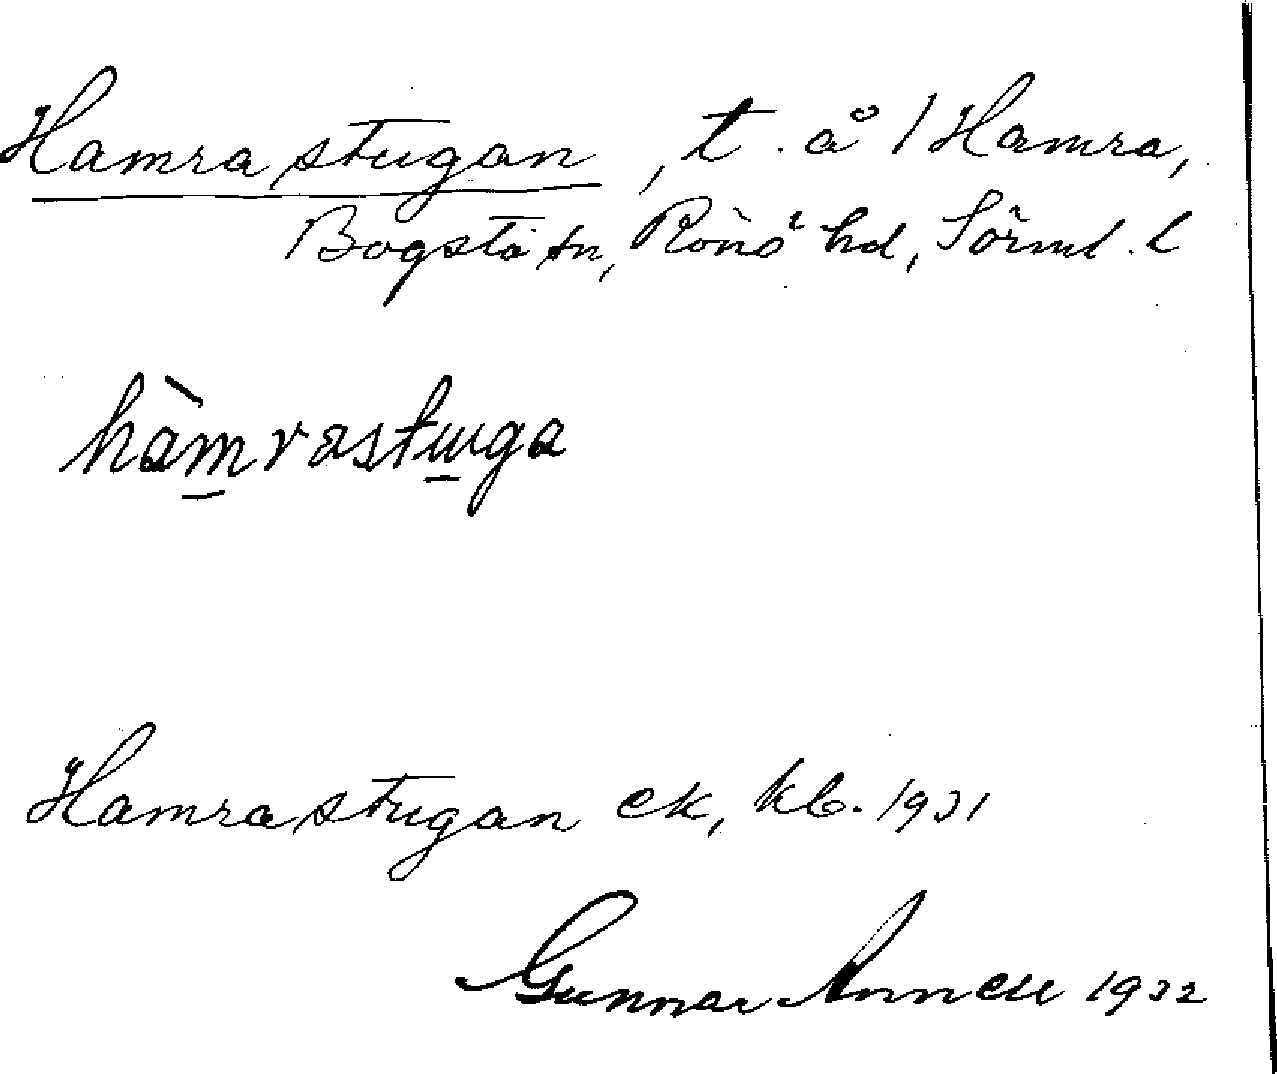 Hamrastugan, t. å /Hamra,
Bogsta sn, Rönö hd, Sörml. l
hàmrastuga
Hamrastugan ek, kb. 1931
Gunnar Annell 1932